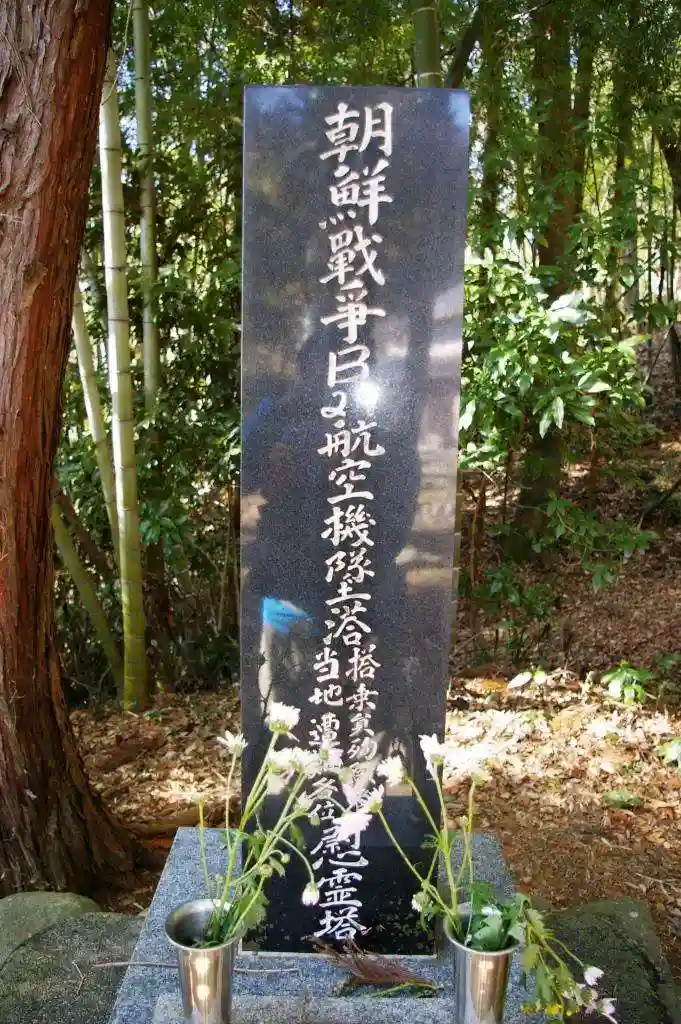 朝鮮戰爭B2航空機墜落
搭乗員殉
当地遭各位
慰霊塔